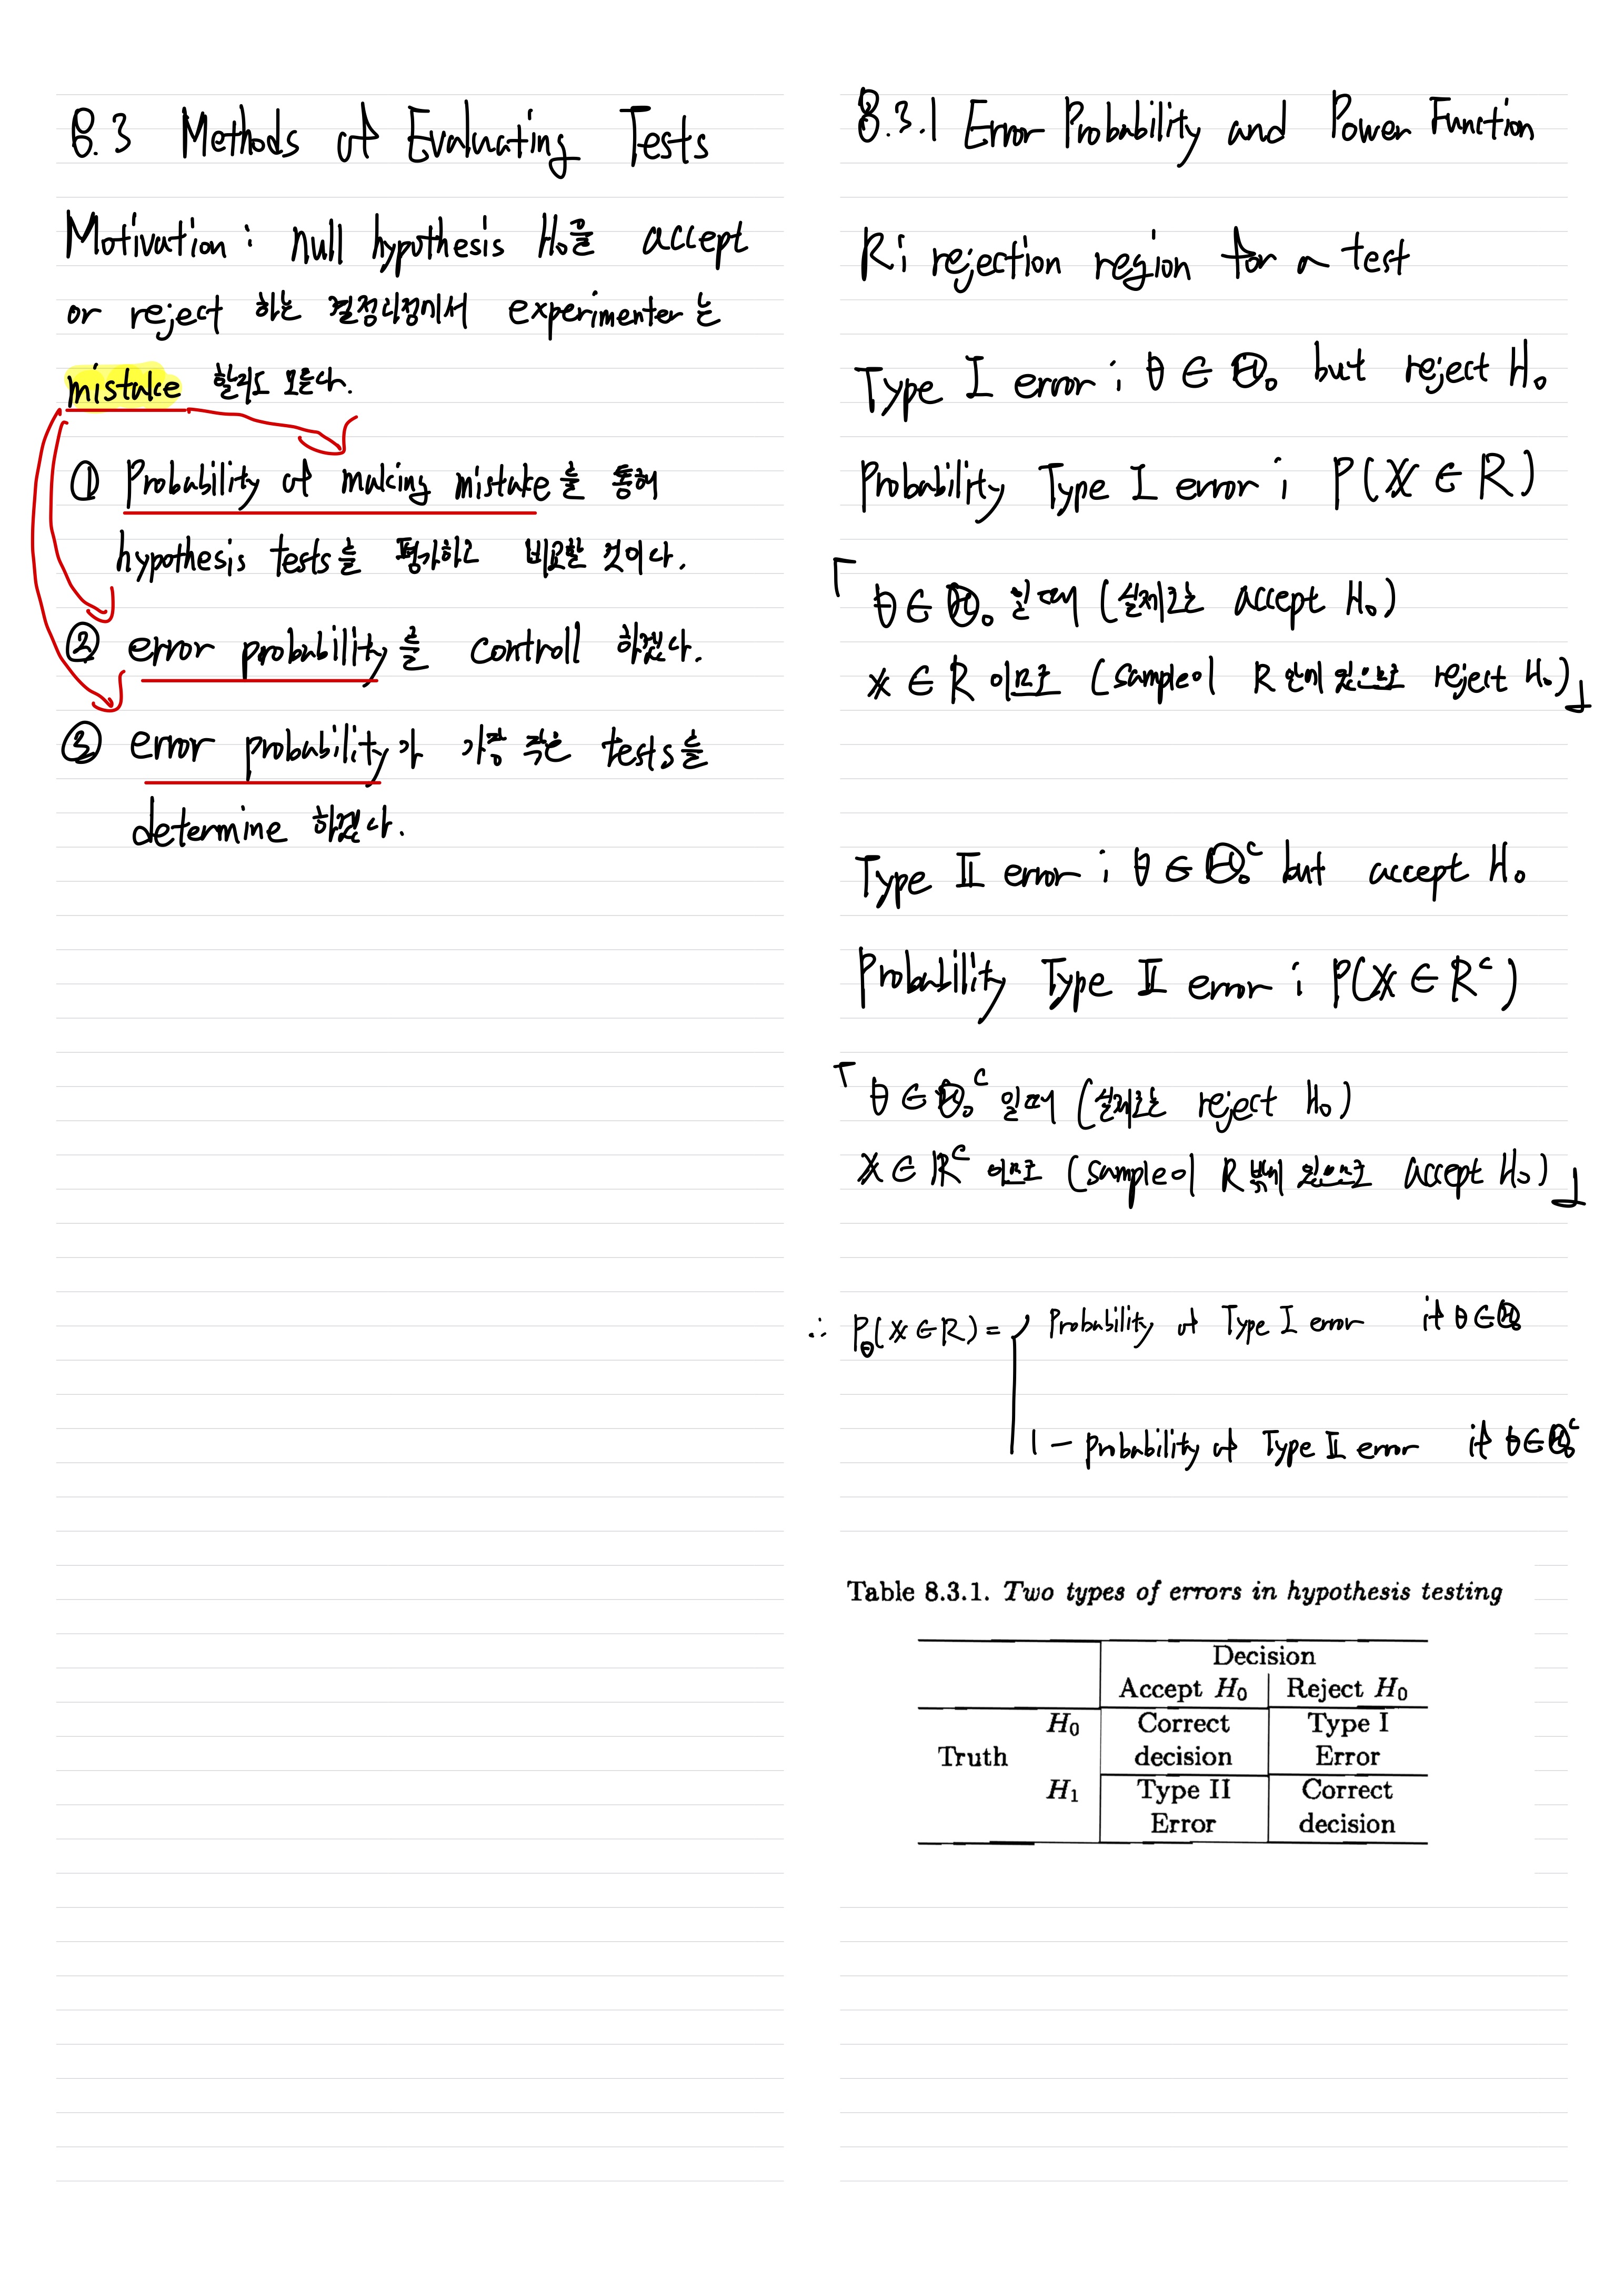 8.3 Methods of Evaluating Tests
Motivation : null hypothesis H₀을 accept
or reject 하는 결정과정에서 experimenter는
mistake 할지도 모른다.
① Probability of making mistake를 통해
hypothesis tests를 평가하고 비교할 것이다.
② error probability를 controll 하겠다.
③ error probability가 가장 작은 tests를
determine 하겠다.
8.3.1 Error Probability and Power Function
R ; rejection region for a test
Type I error ; θ ∈ Θ₀ but reject H₀
Probability Type I error ; P(X ∈ R)
「 θ ∈ Θ₀ 일때 (실제로는 accept H₀)
x ∈ R 이므로 (sample이 R 안에 있으므로 reject H₀) 」
Type II error ; θ ∈ Θ₀ᶜ but accept H₀
Probability Type II error ; P(X ∈ Rᶜ)
「 θ ∈ Θ₀ᶜ 일때 (실제로는 reject H₀)
X ∈ Rᶜ 이므로 (sample이 R 밖에 있으므로 accept H₀) 」
∴ P_θ(X ∈ R) = { Probability of Type I error if θ ∈ Θ₀
1 - probability of Type II error if θ ∈ Θ₀ᶜ
Table 8.3.1. Two types of errors in hypothesis testing
Decision
Accept H₀ Reject H₀
H₀ Correct Type I
Truth decision Error
H₁ Type II Correct
Error decision